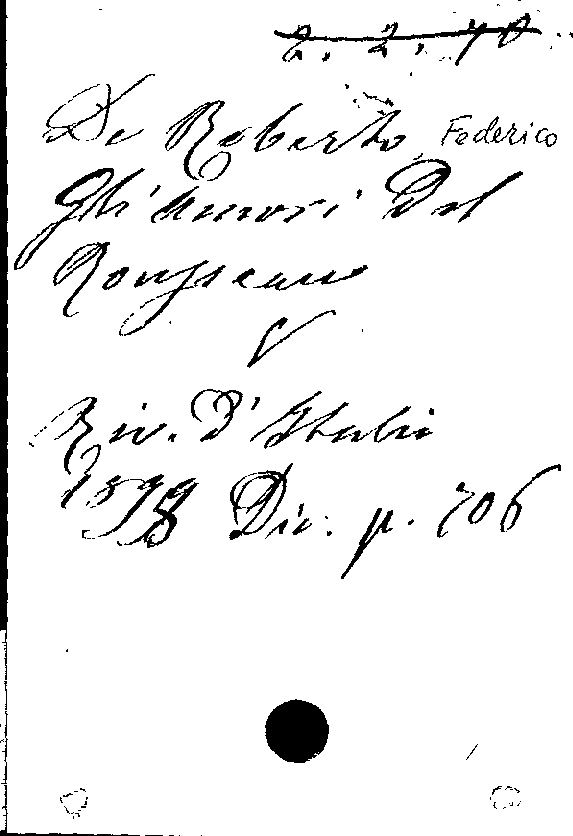 2. 2. 70
De Roberto, Federico
Gli amori Del
Rousseau
V
Riv. D'Italia
1898 Dic. p. 706